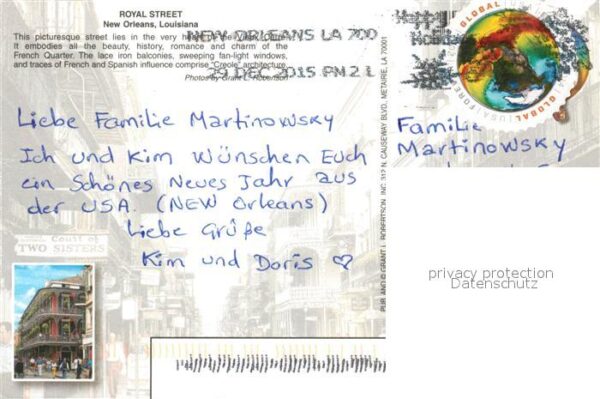 ROYAL STREET
New Orleans, Louisiana
This picturesque street lies in the very
It embodies all the beauty, history, romance and charm of the
French Quarter. The lace iron balconies, sweeping fan-light windows,
and traces of French and Spanish influence comprise "Creole" architecture.
Photos by Grant L. Robertson
NEW ORLEANS LA 700
29 DEC 2015 PM 2 L
GLOBAL
GLOBAL USA FOREVER
Liebe Familie Martinowsky
Ich und Kim wünschen Euch
ein Schönes Neues Jahr aus
der USA. (NEW Orleans)
Liebe Grüße
Kim und Doris ♡
Familie
Martinowsky
PUB. AND © GRANT L. ROBERTSON, INC. 312 N. CAUSEWAY BLVD., METAIRIE, LA 70001
Court of
TWO SISTERS
privacy protection
Datenschutz